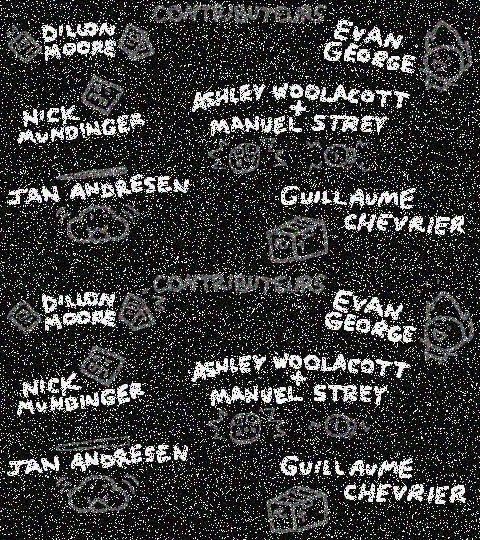 CONTRIBUTEURS
DILLON
MOORE
EVAN
GEORGE
NICK
MUNDINGER
ASHLEY WOOLACOTT
+
MANUEL STREY
JAN ANDRESEN
GUILLAUME
CHEVRIER
CONTRIBUTEURS
DILLON
MOORE
EVAN
GEORGE
NICK
MUNDINGER
ASHLEY WOOLACOTT
+
MANUEL STREY
JAN ANDRESEN
GUILLAUME
CHEVRIER